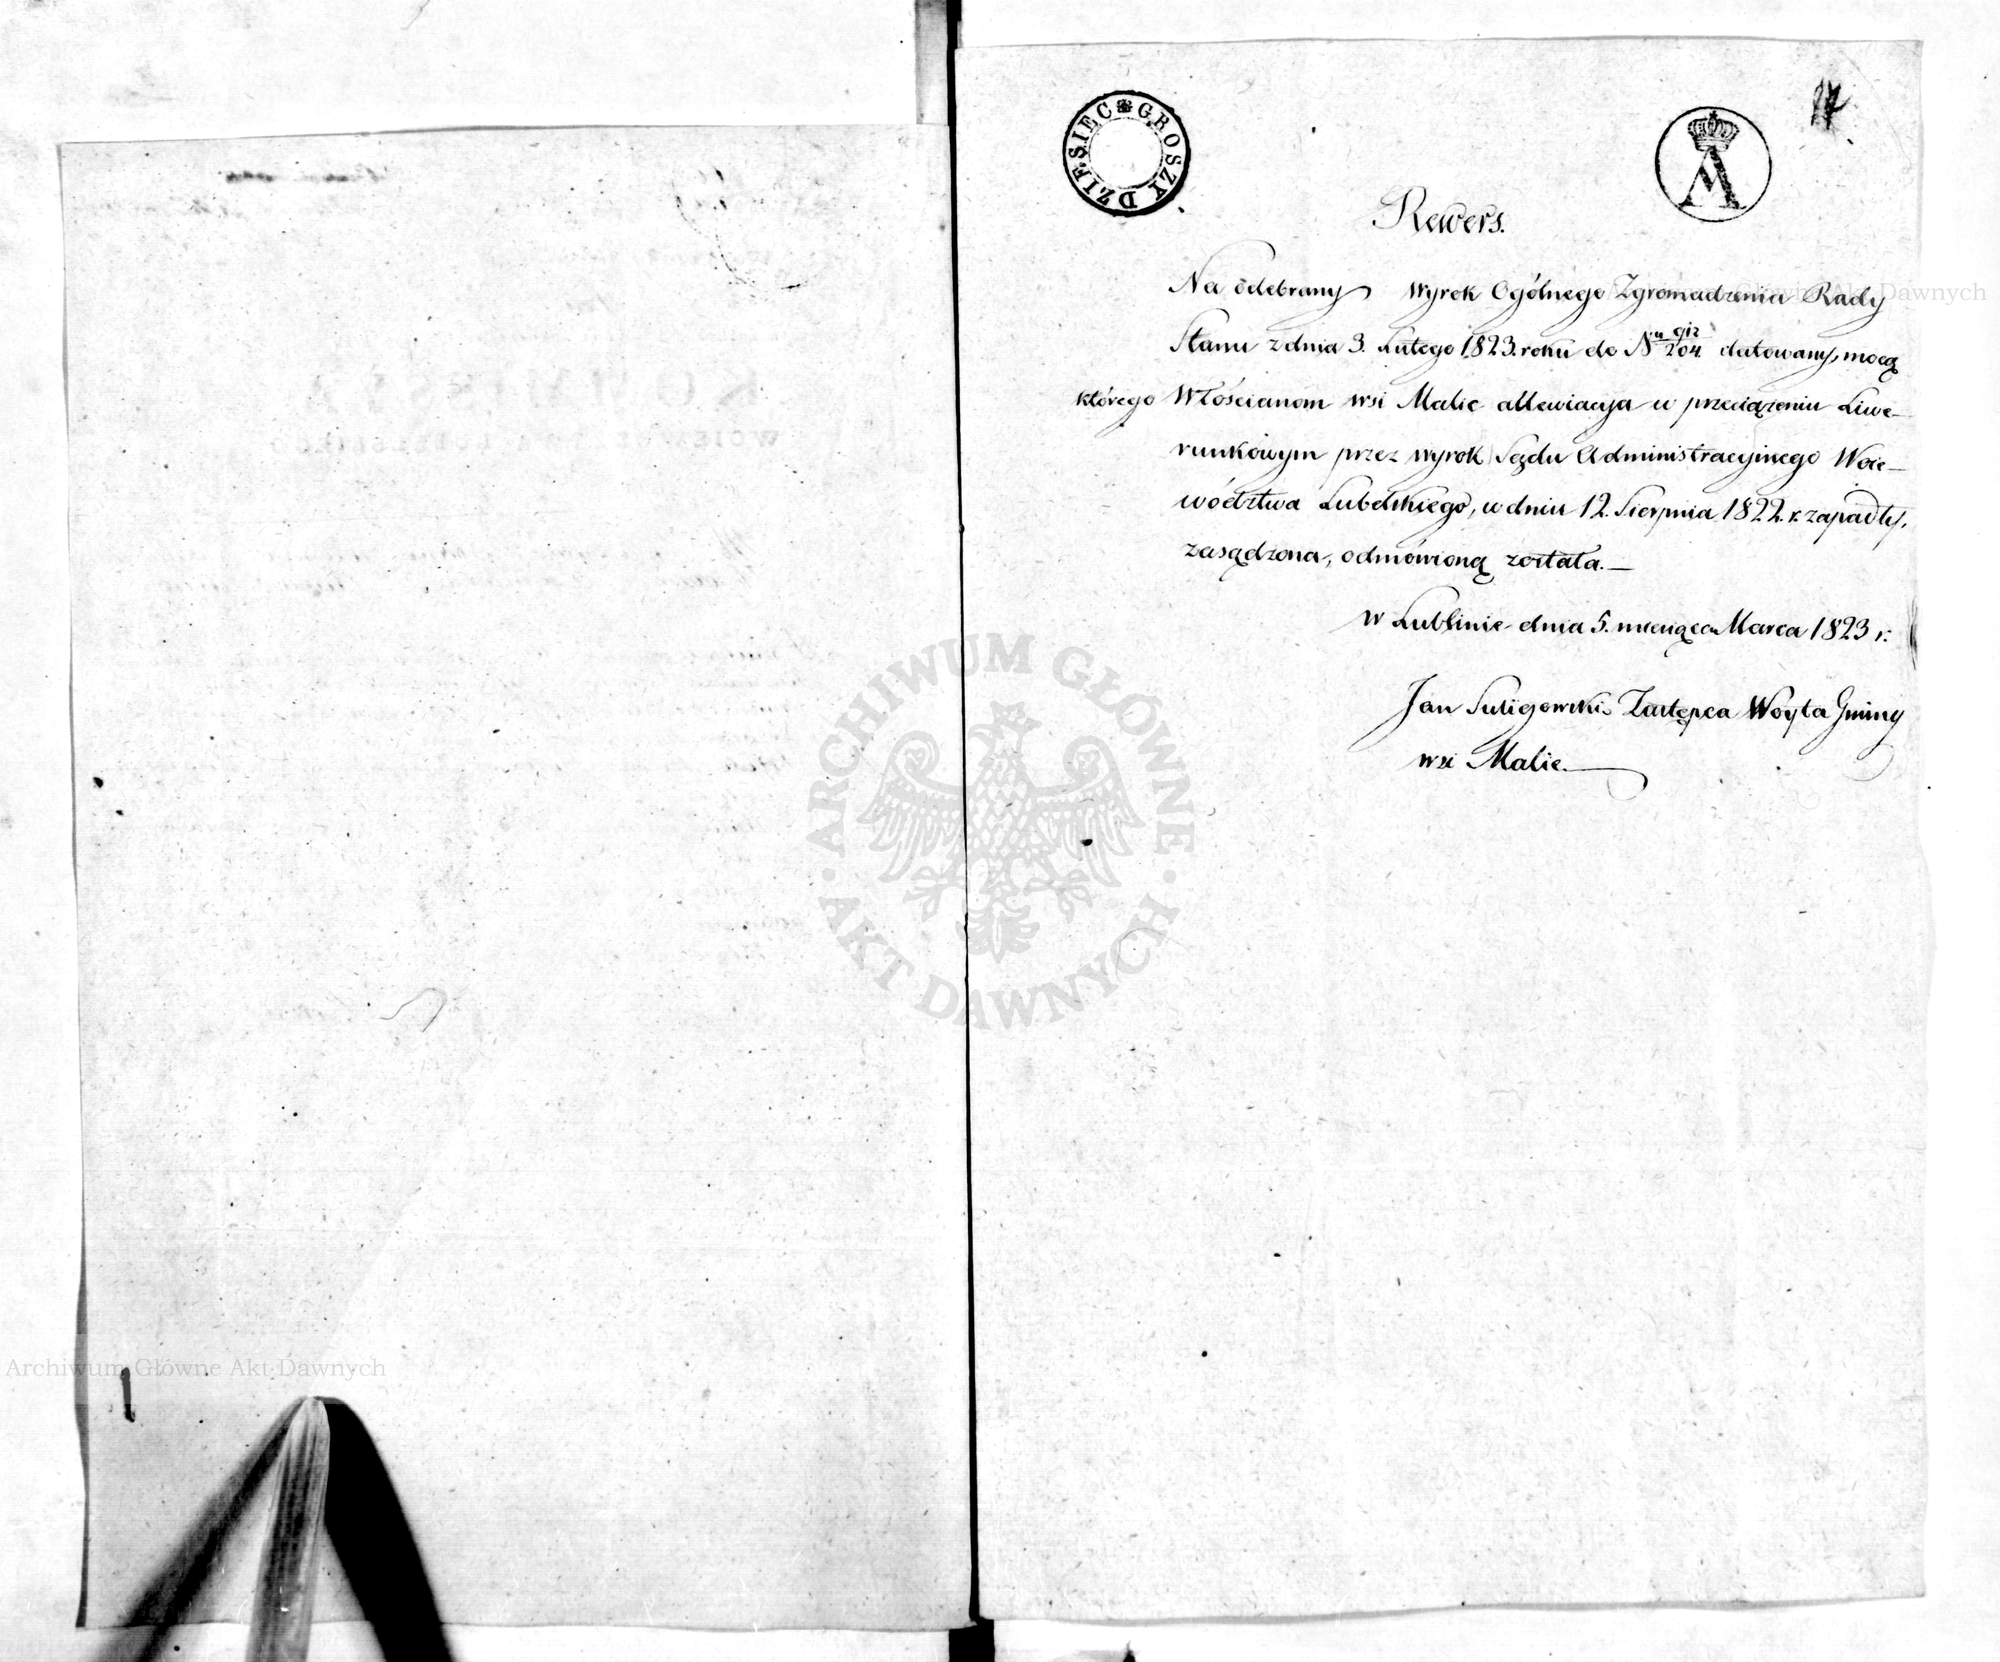 GROSZY DZIESIEC
A
Rewers.
Na odebrany wyrok Ogólnego Zgromadzenia Rady
Stanu z dnia 3. Lutego 1823. roku do N 204 datowany, mocą
którego Włościanom wsi Malic allewiacya w przeciążeniu Liwe-
runkowym przez wyrok Sądu Administracyinego Woie-
wództwa Lubelskiego, w dniu 12. Sierpnia 1822. r. zapadły,
zasądzona, odmówioną została.—
w Lublinie dnia 5. miesiąca Marca 1823 r.
Jan Suligowski Zastępca Woyta Gminy
wsi Malic.
ARCHIWUM GŁÓWNE · AKT DAWNYCH ·
Archiwum Główne Akt Dawnych
Archiwum Główne Akt Dawnych